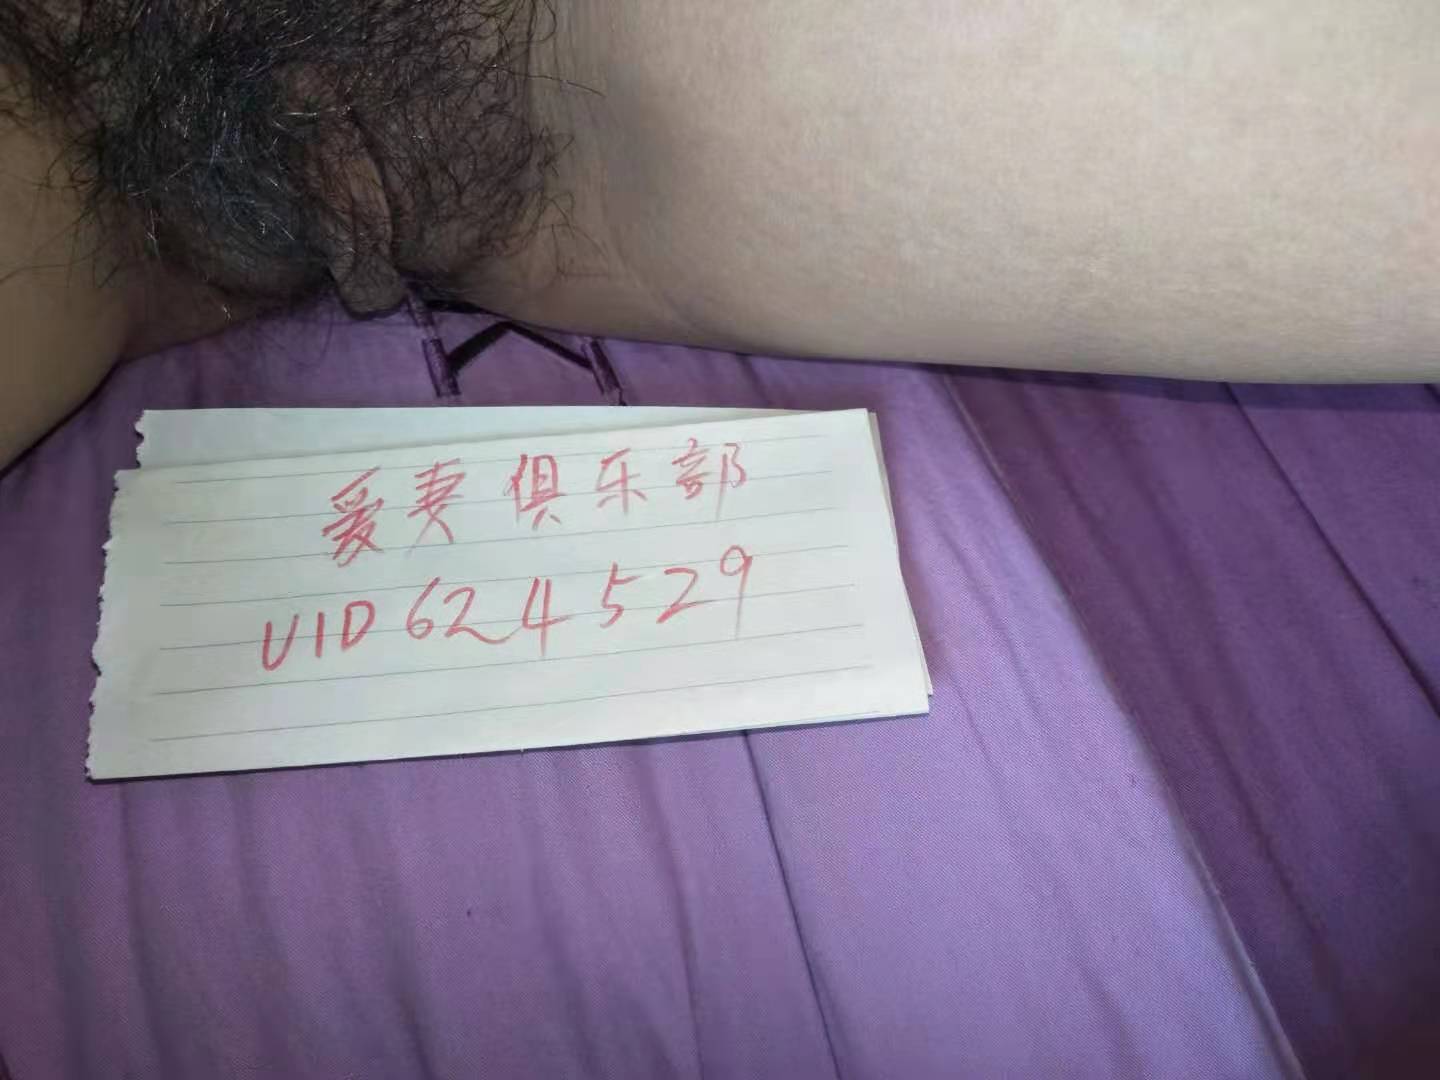 爱妻俱乐部
UID 624529